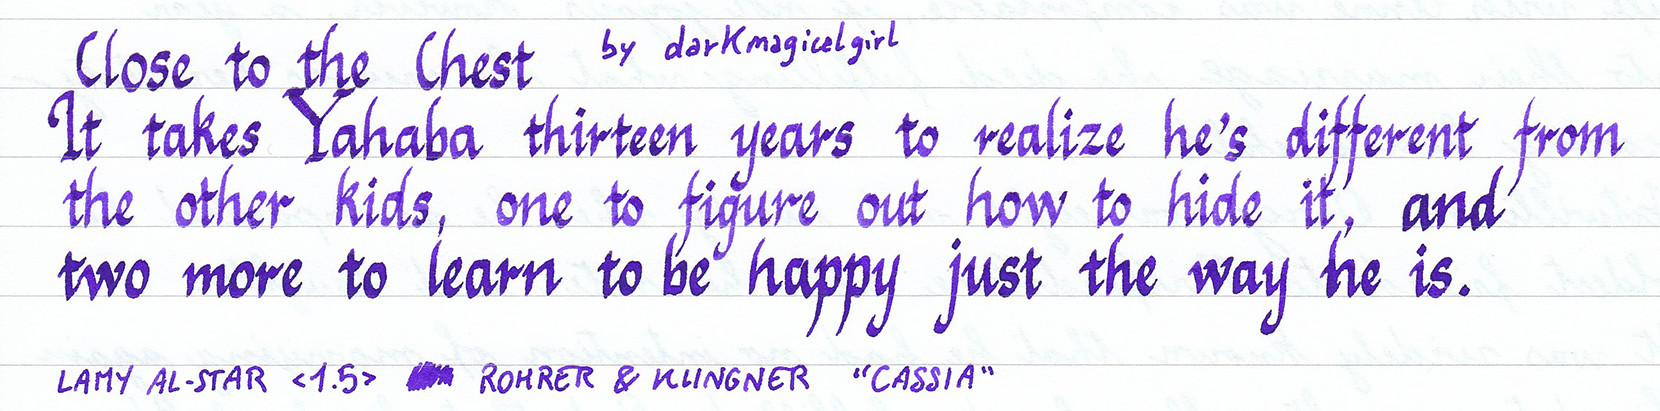 Close to the Chest by darkmagicalgirl
It takes Yahaba thirteen years to realize he's different from
the other kids, one to figure out how to hide it, and
two more to learn to be happy just the way he is.
LAMY AL-STAR <1.5> ROHRER & KLINGNER "CASSIA"